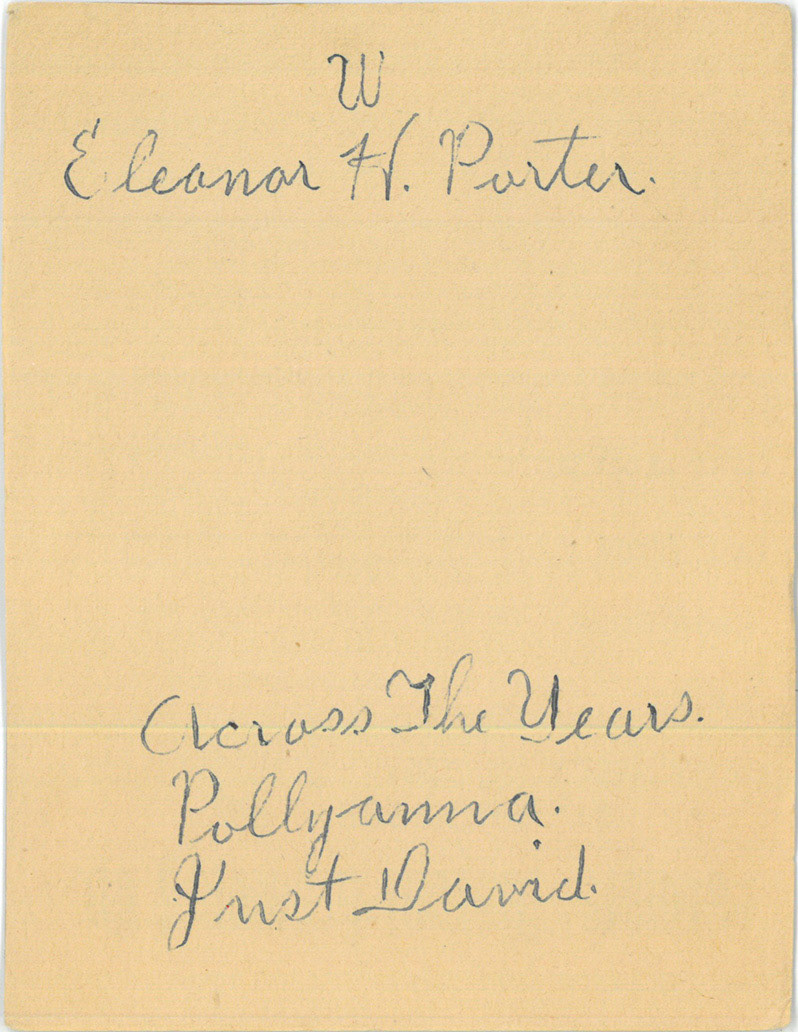 W
Eleanor H. Porter.
Across The Years.
Pollyanna.
Just David.